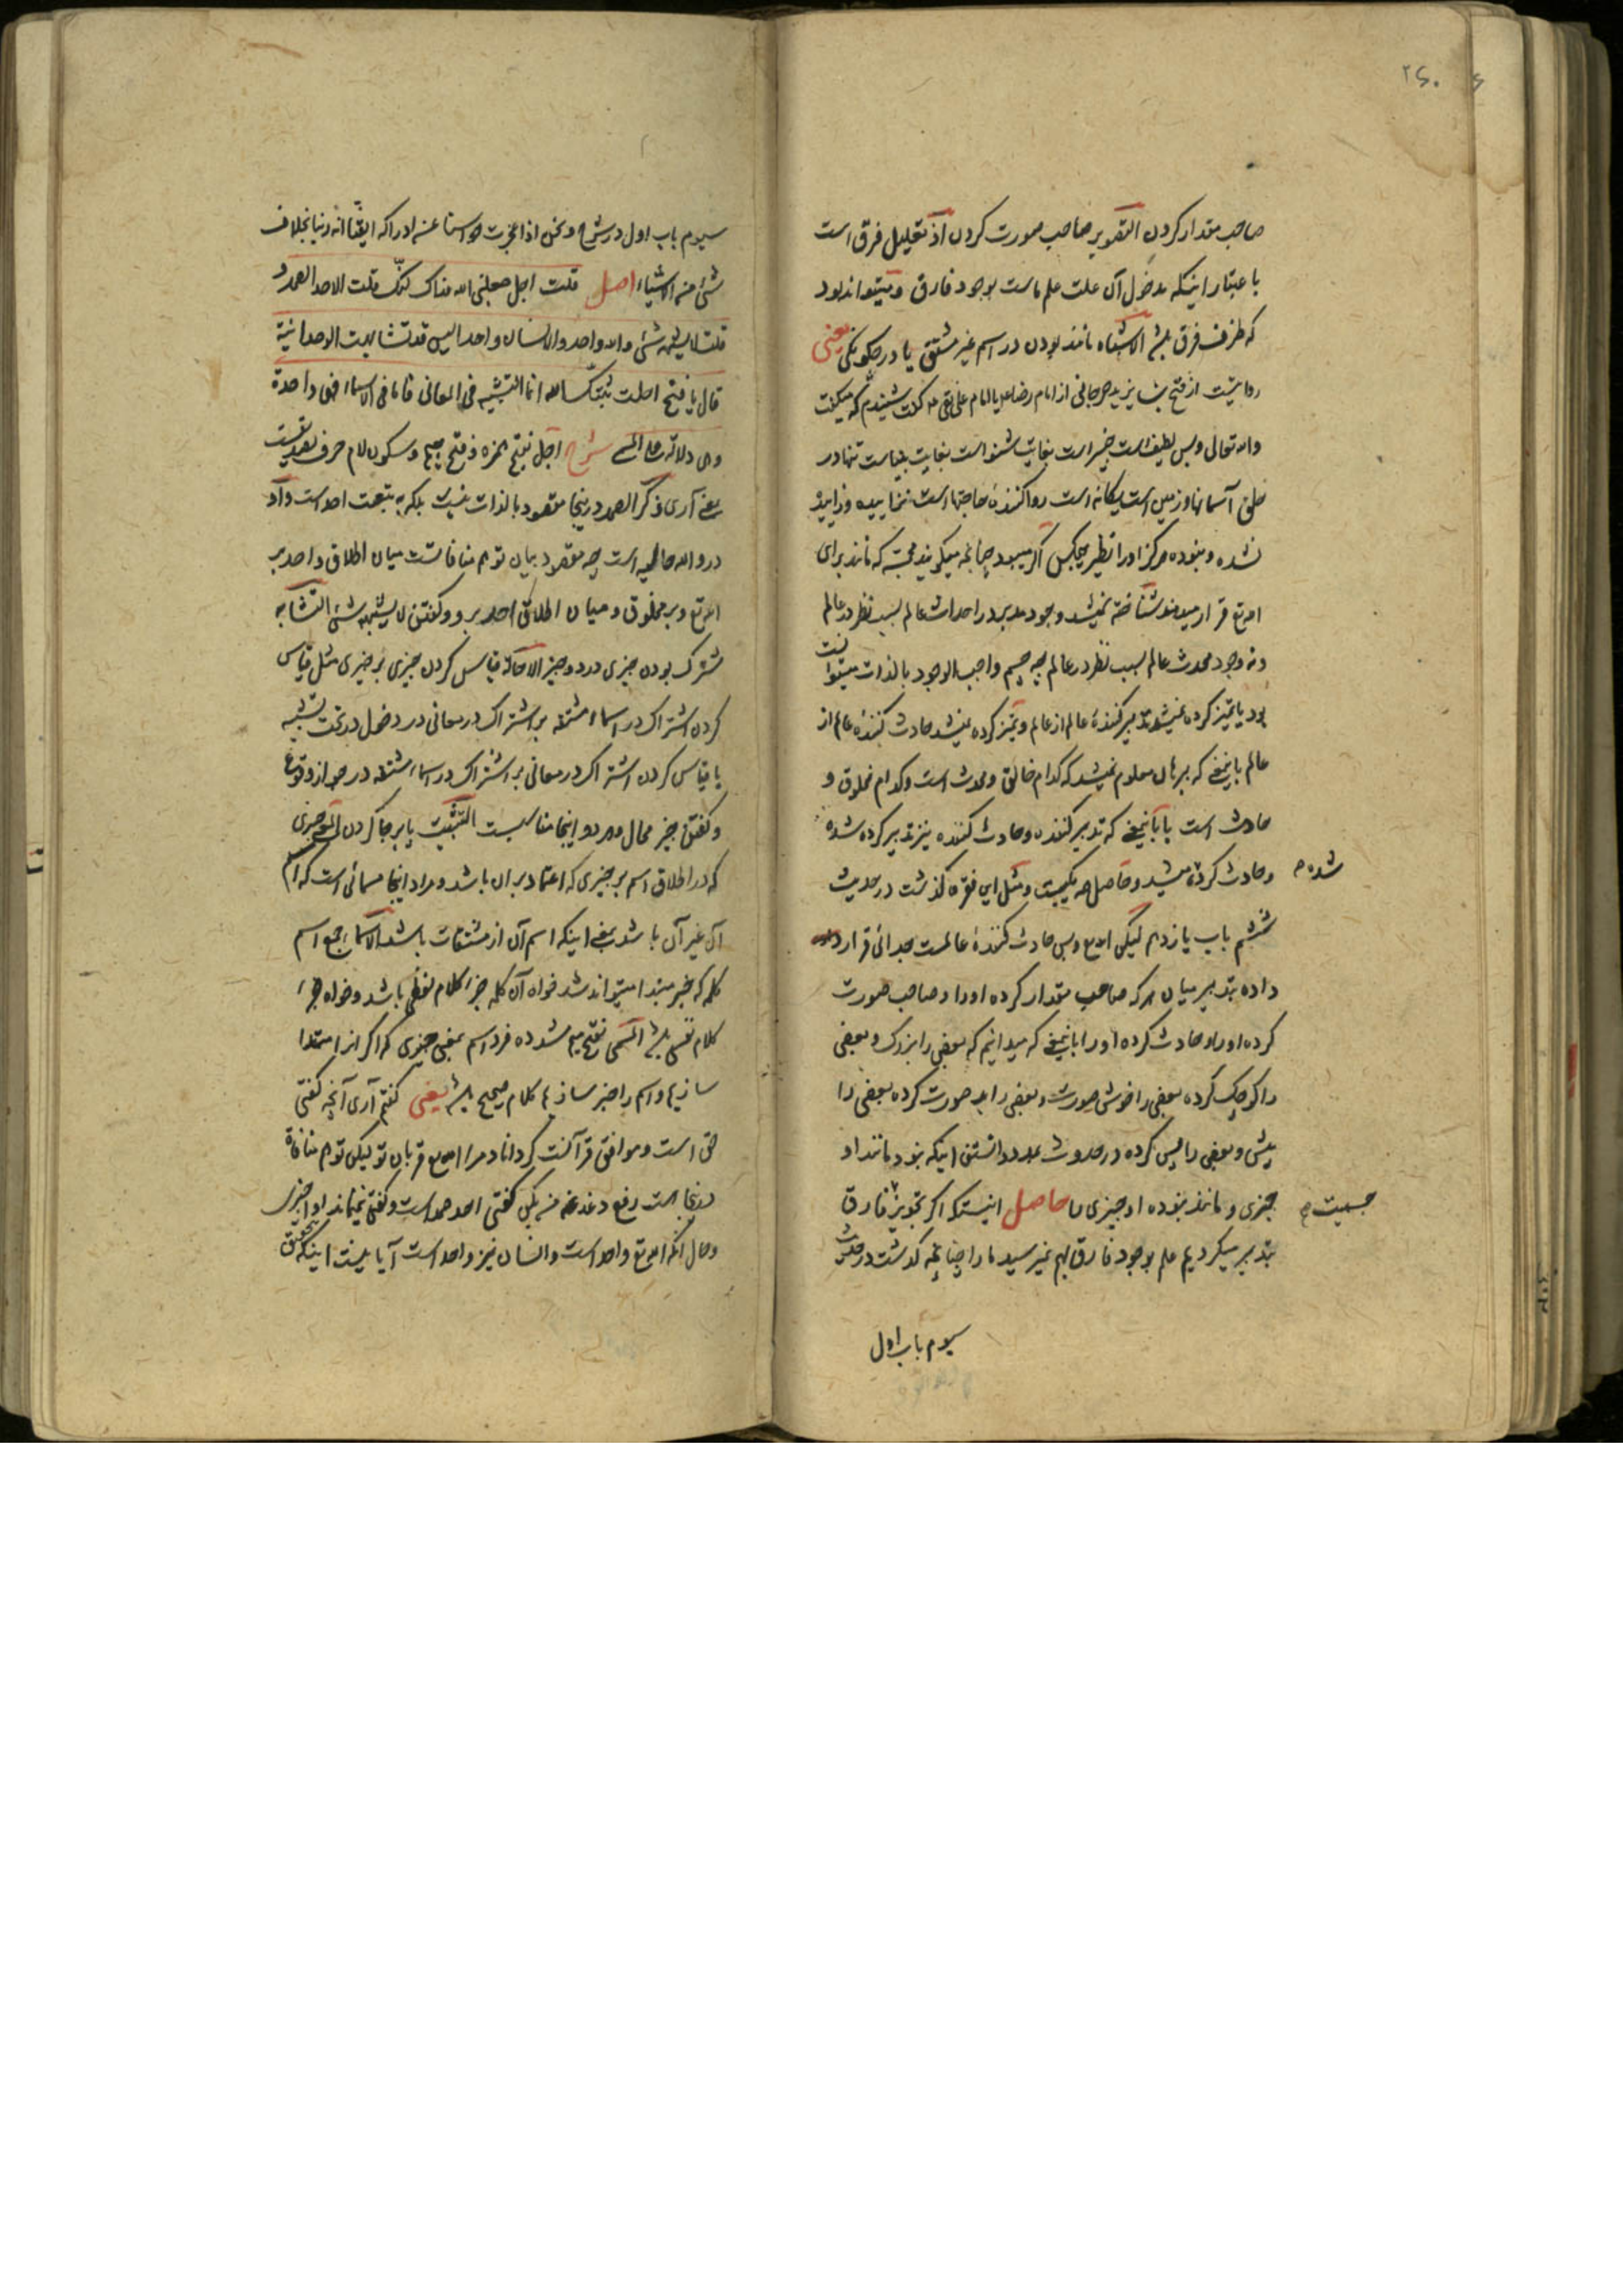 ۲۶۰
صاحب مقدار کردن التصویر صاحب صورت کردن اذ تعلیل فرق است
باعتبار اینکه مدخول آن علت علم ماست بوجود فارق و میتواند بود
که ظرف فرق باشد الاشتباه مانند بودن در اسم غیر مشتق یا در چگونگی یعنی
روایتست از فتح بن یزید جرجانی از امام رضا یا امام علی نقی ع گفت شنیدم که میگفت
والله تعالی و بس لطیف است خبیر است بغایت شنواست بغایت بیناست تنها در
خلق آسمانها و زمین است یگانه است روا کنندهٔ حاجتها است نزاییده و زاییده
نشده و نبوده هرگز او را نظیر هیچکس اگر میبود چنانچه میگویند مجسمه که مانند برای
الله تع قرار میدهند شناخته نمیشد وجود مدبر در احداث عالم بسبب نظر در عالم
و نه وجود محدث عالم بسبب نظر در عالم چه جسم واجب الوجود بالذات نمیتواند
بود یا تمیز کرده نمیشد تدبیر کنندهٔ عالم از عالم و تمیز کرده نمیشد حادث کنندهٔ عالم از
عالم باینمعنی که ببرهان معلوم نمیشد که کدام خالق و محدث است و کدام مخلوق و
حادث است یا باینمعنی که تدبیر کننده و حادث کننده نیز تدبیر کرده شده
و حادث کرده میشد و حاصل هر دو یکیست و مثل این فقره گذشت در حدیث
شده ص
ششم باب یازدهم لیکن الله تع و بس حادث کنندهٔ عالمست جدائی قرار
داده بتدبیر میان هر که صاحب مقدار کرده او را و صاحب صورت
کرده او را و حادث کرده او را باینمعنی که میدانیم که بعضی را بزرگ و بعضی
را کوچک کرده بعضی را خوش صورت و بعضی را بد صورت کرده بعضی را
پیش و بعضی را پس کرده در حدوث بعد دانستن اینکه نبود مانند او
چیزی و مانند نبوده او چیزی را حاصل اینست که اگر تجویز فارق
جسمیت ص
بتدبیر میکردیم علم بوجود فارق بهم نمیرسید ما را چنانچه گذشت در حدیث
سیوم باب اول
سیوم باب اول در شرح و نحن اذا عجزت حواسنا عن ادراکه ایقنا انه ربنا بخلاف
شیء من الاشیاء اصل قلت اجل جعلنی الله فداک لکنّک قلت الاحد الصمد و
قلت لا یشبهه شیء والله واحد والانسان واحد الیس قد تشابهت الوحدانیة
قال یا فتح احلت ثبّتک الله انما التشبیه فی المعانی فاما فی الاسماء فهی واحدة
و هی دلالة علی المسمی شرح اجل بفتح همزه و فتح جیم و سکون لام حرف تصدیقست
یعنی آری ذکر الصمد در اینجا مقصود بالذات نیست بلکه به تبعیت احد است و واو
در والله حالیه است چه مقصود بیان توهم منافاتست میان اطلاق واحد بر
الله تع و بر مخلوق و میان اطلاق احد بر او و گفتن لا یشبهه شیء التشابه
مشترک بودن چیزی در دو چیز الاحالة قیاس کردن چیزی بر چیزی مثل قیاس
کردن اشتراک در اسماء مشتقه بر اشتراک در معانی در دخول در تحت تشبیه
یا قیاس کردن اشتراک در معانی بر اشتراک در اسماء مشتقه در جواز وقوع
و گفتن چیز محال و هر دو اینجا مناسبست التثبیت پا برجا کردن المعنی چیزی
که در اطلاق اسم بر چیزی که اعتماد بر آن باشد و مراد اینجا مسمائی است که اسم
آن غیر آن باشد یعنی اینکه اسم آن از مشتقات باشد الاسماء جمع اسم
کلمه که خبر مبتدا میتواند شد خواه آن کلمه جزء کلام لفظی باشد و خواه جزء
کلام نفسی باشد المسمی بفتح میم مشدده فرد اسم بمعنی چیزی که اگر آنرا مبتدا
سازیم و اسم را خبر سازیم کلام صحیح باشد یعنی گفتم آری آنچه گفتی
حق است و موافق قرآنست گرداناد مرا الله تع قربان تو لیکن توهم منافاة
در اینجا هست رفع دغدغه من بکن گفتی احد صمد است و گفتی نمیماند او را چیزی
و حال آنکه الله تع واحد است و انسان نیز واحد است آیا نیست اینکه بتحقیق